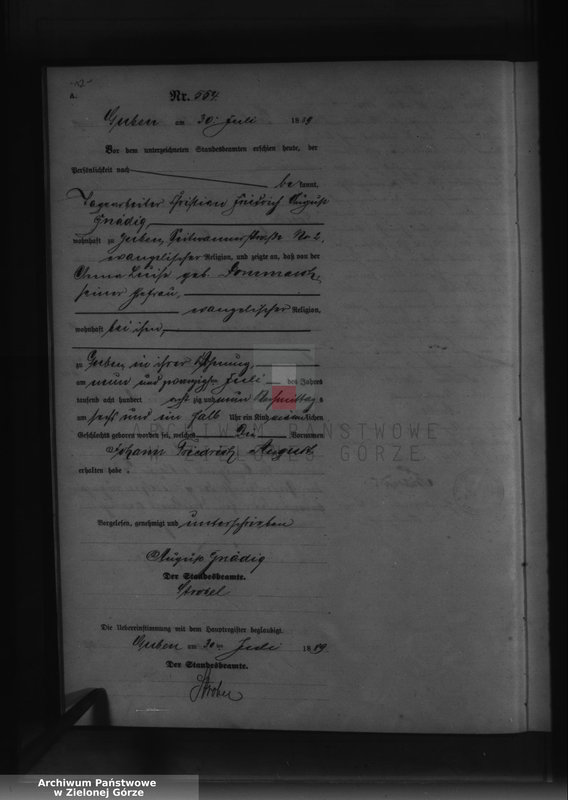 A.
Nr. 554.
Guben am 30. Juli 1889
Vor dem unterzeichneten Standesbeamten erschien heute, der
Persönlichkeit nach
be kannt,
Christian Friedrich August
Gnädig,
wohnhaft zu Guben, No 2,
evangelischer Religion, und zeigte an, daß von der
Anna Luise geb. Dommasch,
seiner Ehefrau,
evangelischer Religion,
wohnhaft bei ihm,
zu Guben in ihrer Wohnung,
am neun und zwanzigsten Juli des Jahres
tausend acht hundert acht zig und neun Vormittags
um sechs und ein halb Uhr ein Kind männlichen
Geschlechts geboren worden sei, welches die Vornamen
Johann Friedrich August
erhalten habe.
Vorgelesen, genehmigt und unterschrieben
August Gnädig
Der Standesbeamte.
Strobel
Die Uebereinstimmung mit dem Hauptregister beglaubigt.
Guben am 30ten Juli 1889.
Der Standesbeamte.
Strobel
ARCHIWUM PAŃSTWOWE
W ZIELONEJ GÓRZE
Archiwum Państwowe
w Zielonej Górze